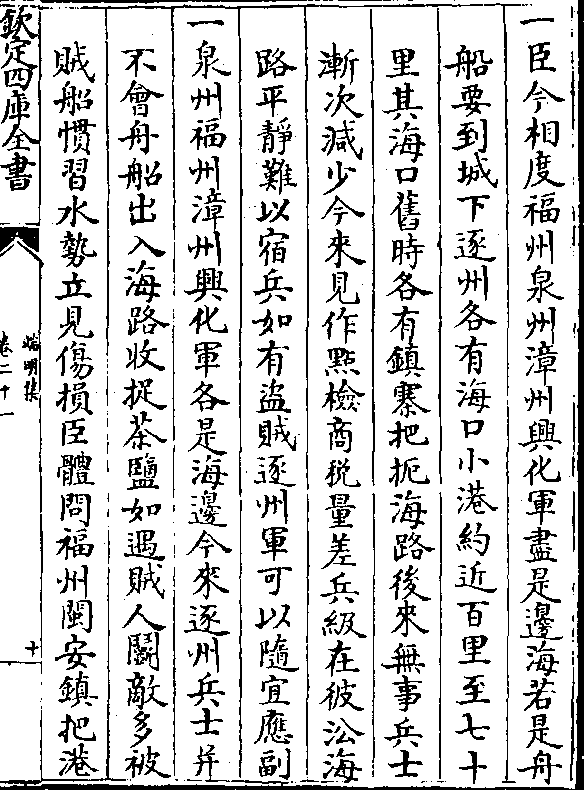 一臣今相度福州泉州漳州興化軍盡是邊海若是舟
船要到城下逐州各有海口小港約近百里至七十
里其海口舊時各有鎮寨把扼海路後來無事兵士
漸次減少今來見作點檢商稅量差兵級在彼㳂海
路平靜難以宿兵如有盜賊逐州軍可以隨宜應副
一泉州福州漳州興化軍各是海邊今來逐州兵士并
不會舟船出入海路收捉茶鹽如遇賊人鬭敵多被
賊船慣習水勢立見傷損臣體問福州閩安鎮把港
欽定四庫全書
端明集
卷二十一
十